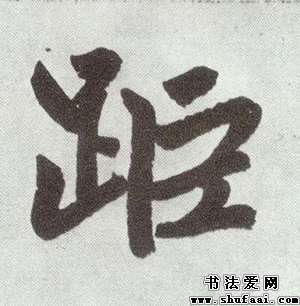 距
书法爱网
www.shufaai.com